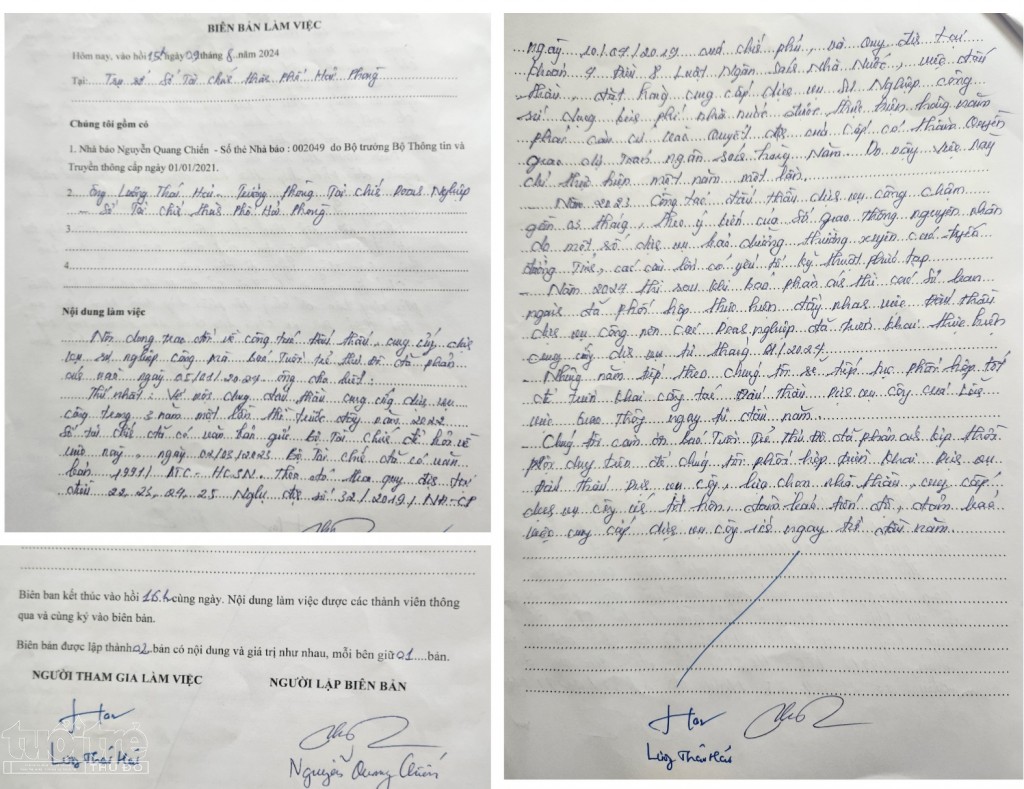 BIÊN BẢN LÀM VIỆC
Hôm nay, vào hồi 15h ngày 09 tháng 8 năm 2024
Tại: Trụ sở Sở Tài chính thành phố Hải Phòng
Chúng tôi gồm có
1. Nhà báo Nguyễn Quang Chiến - Số thẻ Nhà báo : 002049 do Bộ trưởng Bộ Thông tin và
Truyền thông cấp ngày 01/01/2021.
2. Ông Lương Thái Hải - Trưởng phòng Tài chính Doanh Nghiệp
- Sở Tài chính thành Phố Hải Phòng
3
4
Nội dung làm việc
Nội dung trao đổi về công tác đấu thầu, cung cấp dịch
vụ sự nghiệp công mà báo Tuổi trẻ thủ đô đã phản
ánh ngày 05/01/2024 ông cho biết:
Thứ nhất: Về nội dung đấu thầu cung ứng dịch vụ
công trong 3 năm một lần thì trước đây năm 2022
Sở tài chính đã có văn bản gửi Bộ Tài Chính để hỏi về
việc này, ngày 02/03/2023 Bộ Tài chính đã có văn
bản 1991/BTC-HCSN. Theo đó theo quy định tại
điều 22, 23, 24, 25 Nghị định số 32/2019/NĐ-CP
ngày 10/04/2019 của chính phủ, và Quy định tại
khoản 9 Điều 8 Luật Ngân sách Nhà Nước, việc đấu
thầu, đặt hàng cung cấp dịch vụ sự Nghiệp công
sử dụng kinh phí nhà nước được thực hiện hàng năm
phải căn cứ vào Quyết định của cấp có thẩm quyền
giao dự toán ngân sách hàng Năm. Do vậy việc này
chỉ thực hiện một năm một lần.
Năm 2023 công tác đấu thầu dịch vụ công chậm
gần 05 tháng, theo ý kiến của Sở giao thông nguyên nhân
do một số dịch vụ bảo dưỡng thường xuyên các tuyến
đường Tỉnh, các cầu lớn có yếu tố kỹ thuật phức tạp.
Năm 2024 thì sau khi báo phản ánh thì các Sở ban
ngành đã phối hợp thực hiện đẩy nhanh việc Đấu thầu
dịch vụ công nên các Doanh nghiệp đã triển khai thực hiện
cung cấp dịch vụ từ tháng 01/2024.
Những năm tiếp theo chúng tôi sẽ tiếp tục phối hợp tốt
để triển khai công tác Đấu thầu Dịch vụ công của Lĩnh
vực Giao Thông ngay từ đầu năm.
Chúng tôi cảm ơn báo Tuổi Trẻ Thủ đô đã phản ánh kịp thời
để chúng tôi phối hợp triển khai Dịch vụ
Đấu thầu Dịch vụ công, lựa chọn nhà thầu, cung cấp
dịch vụ công ích tốt hơn, đảm bảo tiến độ, đảm bảo
việc cung cấp dịch vụ công ích ngay từ đầu năm.
Biên bản kết thúc vào hồi 16h cùng ngày. Nội dung làm việc được các thành viên thông
qua và cùng ký vào biên bản.
Biên bản được lập thành 02 bản có nội dung và giá trị như nhau, mỗi bên giữ 01 bản.
NGƯỜI THAM GIA LÀM VIỆC
NGƯỜI LẬP BIÊN BẢN
Lương Thái Hải
Nguyễn Quang Chiến
Lương Thái Hải
tuổi trẻ
THỦ ĐÔ